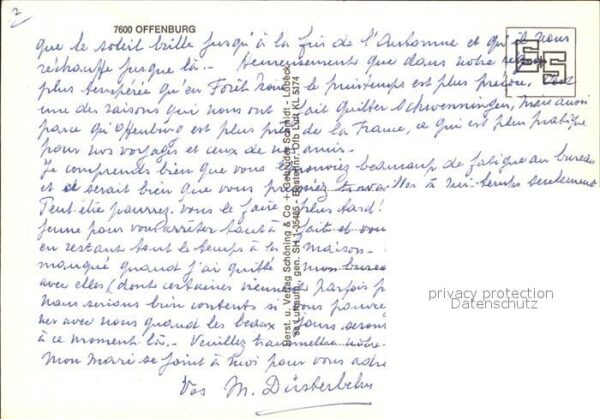 2
7600 OFFENBURG
que le soleil brille jusqu'à la fin de l'Automne et qu'il nous
réchauffe jusque là. - Heureusement que dans notre région
plus tempérée qu'en Forêt Noire le printemps est plus précoce. C'est
une des raisons qui nous ont fait quitter Schwenningen, mais aussi
parce qu'Offenburg est plus près de la France, ce qui est plus pratique
pour nos voyages et ceux de nos amis.
Je comprends bien que vous éprouviez beaucoup de fatigue au bureau
et ce serait bien que vous puissiez travailler à mi-temps seulement
Peut-être pourrez-vous le faire plus tard!
jeune pour vous arrêter tout à fait et vous
en restant tout le temps à la maison.
manqué quand j'ai quitté mon bureau
avec elles (dont certaines viennent parfois
Nous serions bien contents si vous
avec nous quand les beaux jours seront
à ce moment là. - Veuillez transmettre notre
Mon mari se joint à moi pour vous
Vos M. Düsterbehn
Herst. u. Verlag Schöning & Co + Gebrüder Schmidt - Lübeck
Luftaufn. gen. SH 1-35485 - Bestellnr. Of Luft KL 5374
privacy protection
Datenschutz